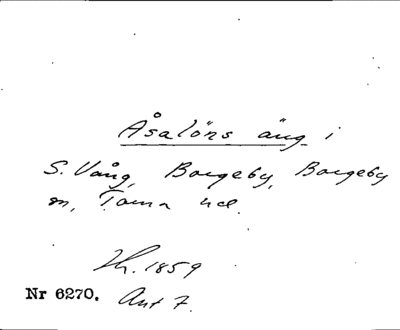 Åsalöns äng i
S. Vång, Borgeby, Borgeby
sn, Torna hd.
Th. 1859
Nr 6270. Ant 7.